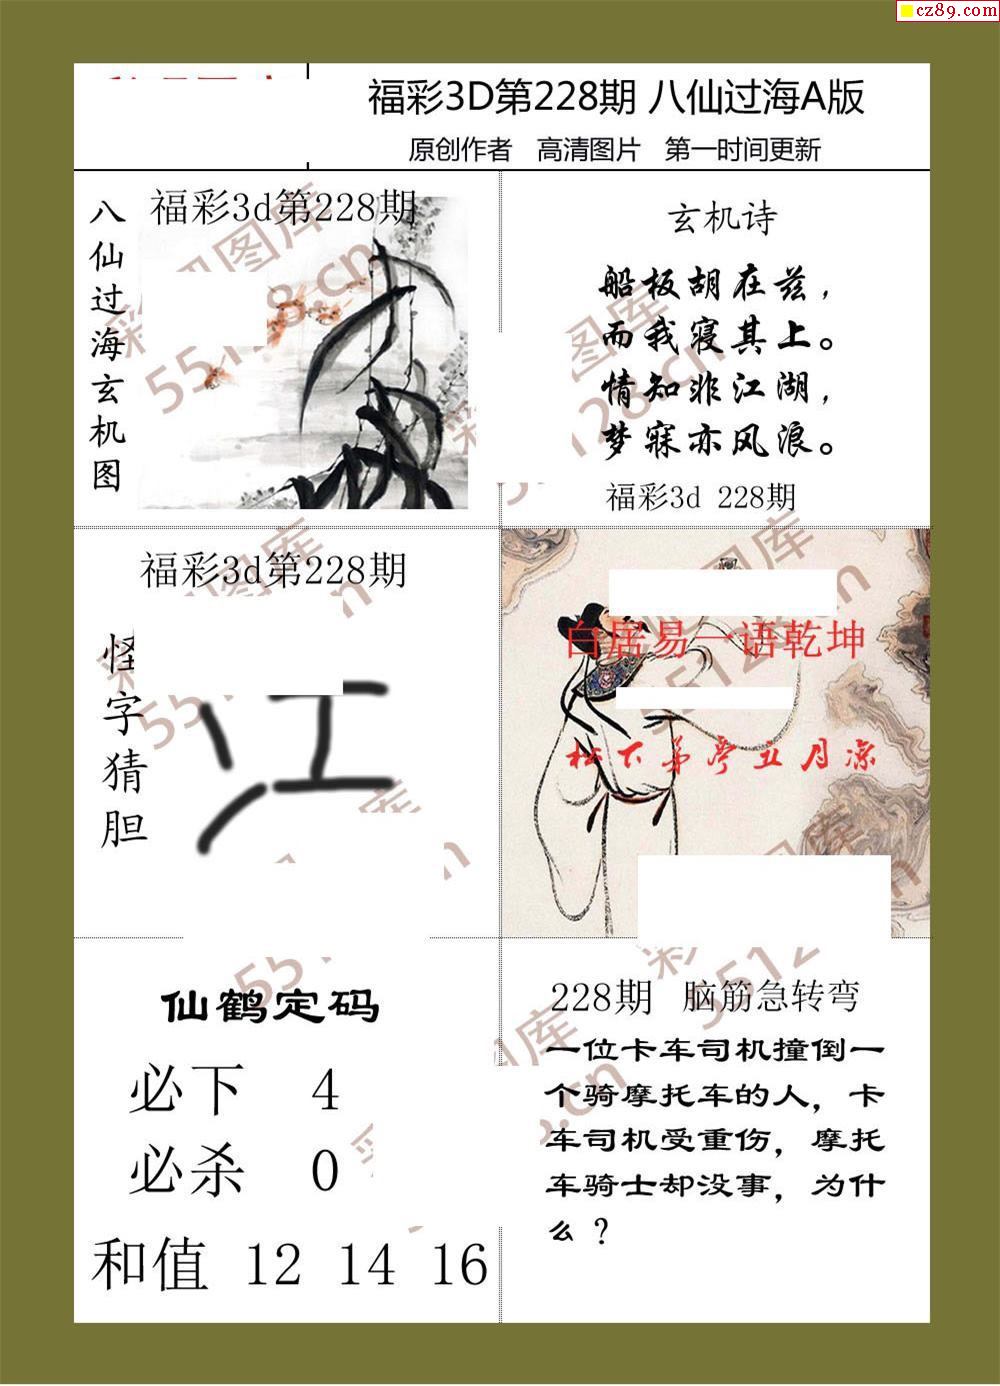 cz89.com
福彩3D第228期 八仙过海A版
原创作者 高清图片 第一时间更新
八仙过海玄机图
福彩3d第228期
玄机诗
船板胡在兹，
而我寝其上。
情知非江湖，
梦寐亦风浪。
福彩3d 228期
福彩3d第228期
怪字猜胆
白居易一语乾坤
松下茅亭五月凉
仙鹤定码
必下 4
必杀 0
和值 12 14 16
228期 脑筋急转弯
一位卡车司机撞倒一
个骑摩托车的人，卡
车司机受重伤，摩托
车骑士却没事，为什
么？